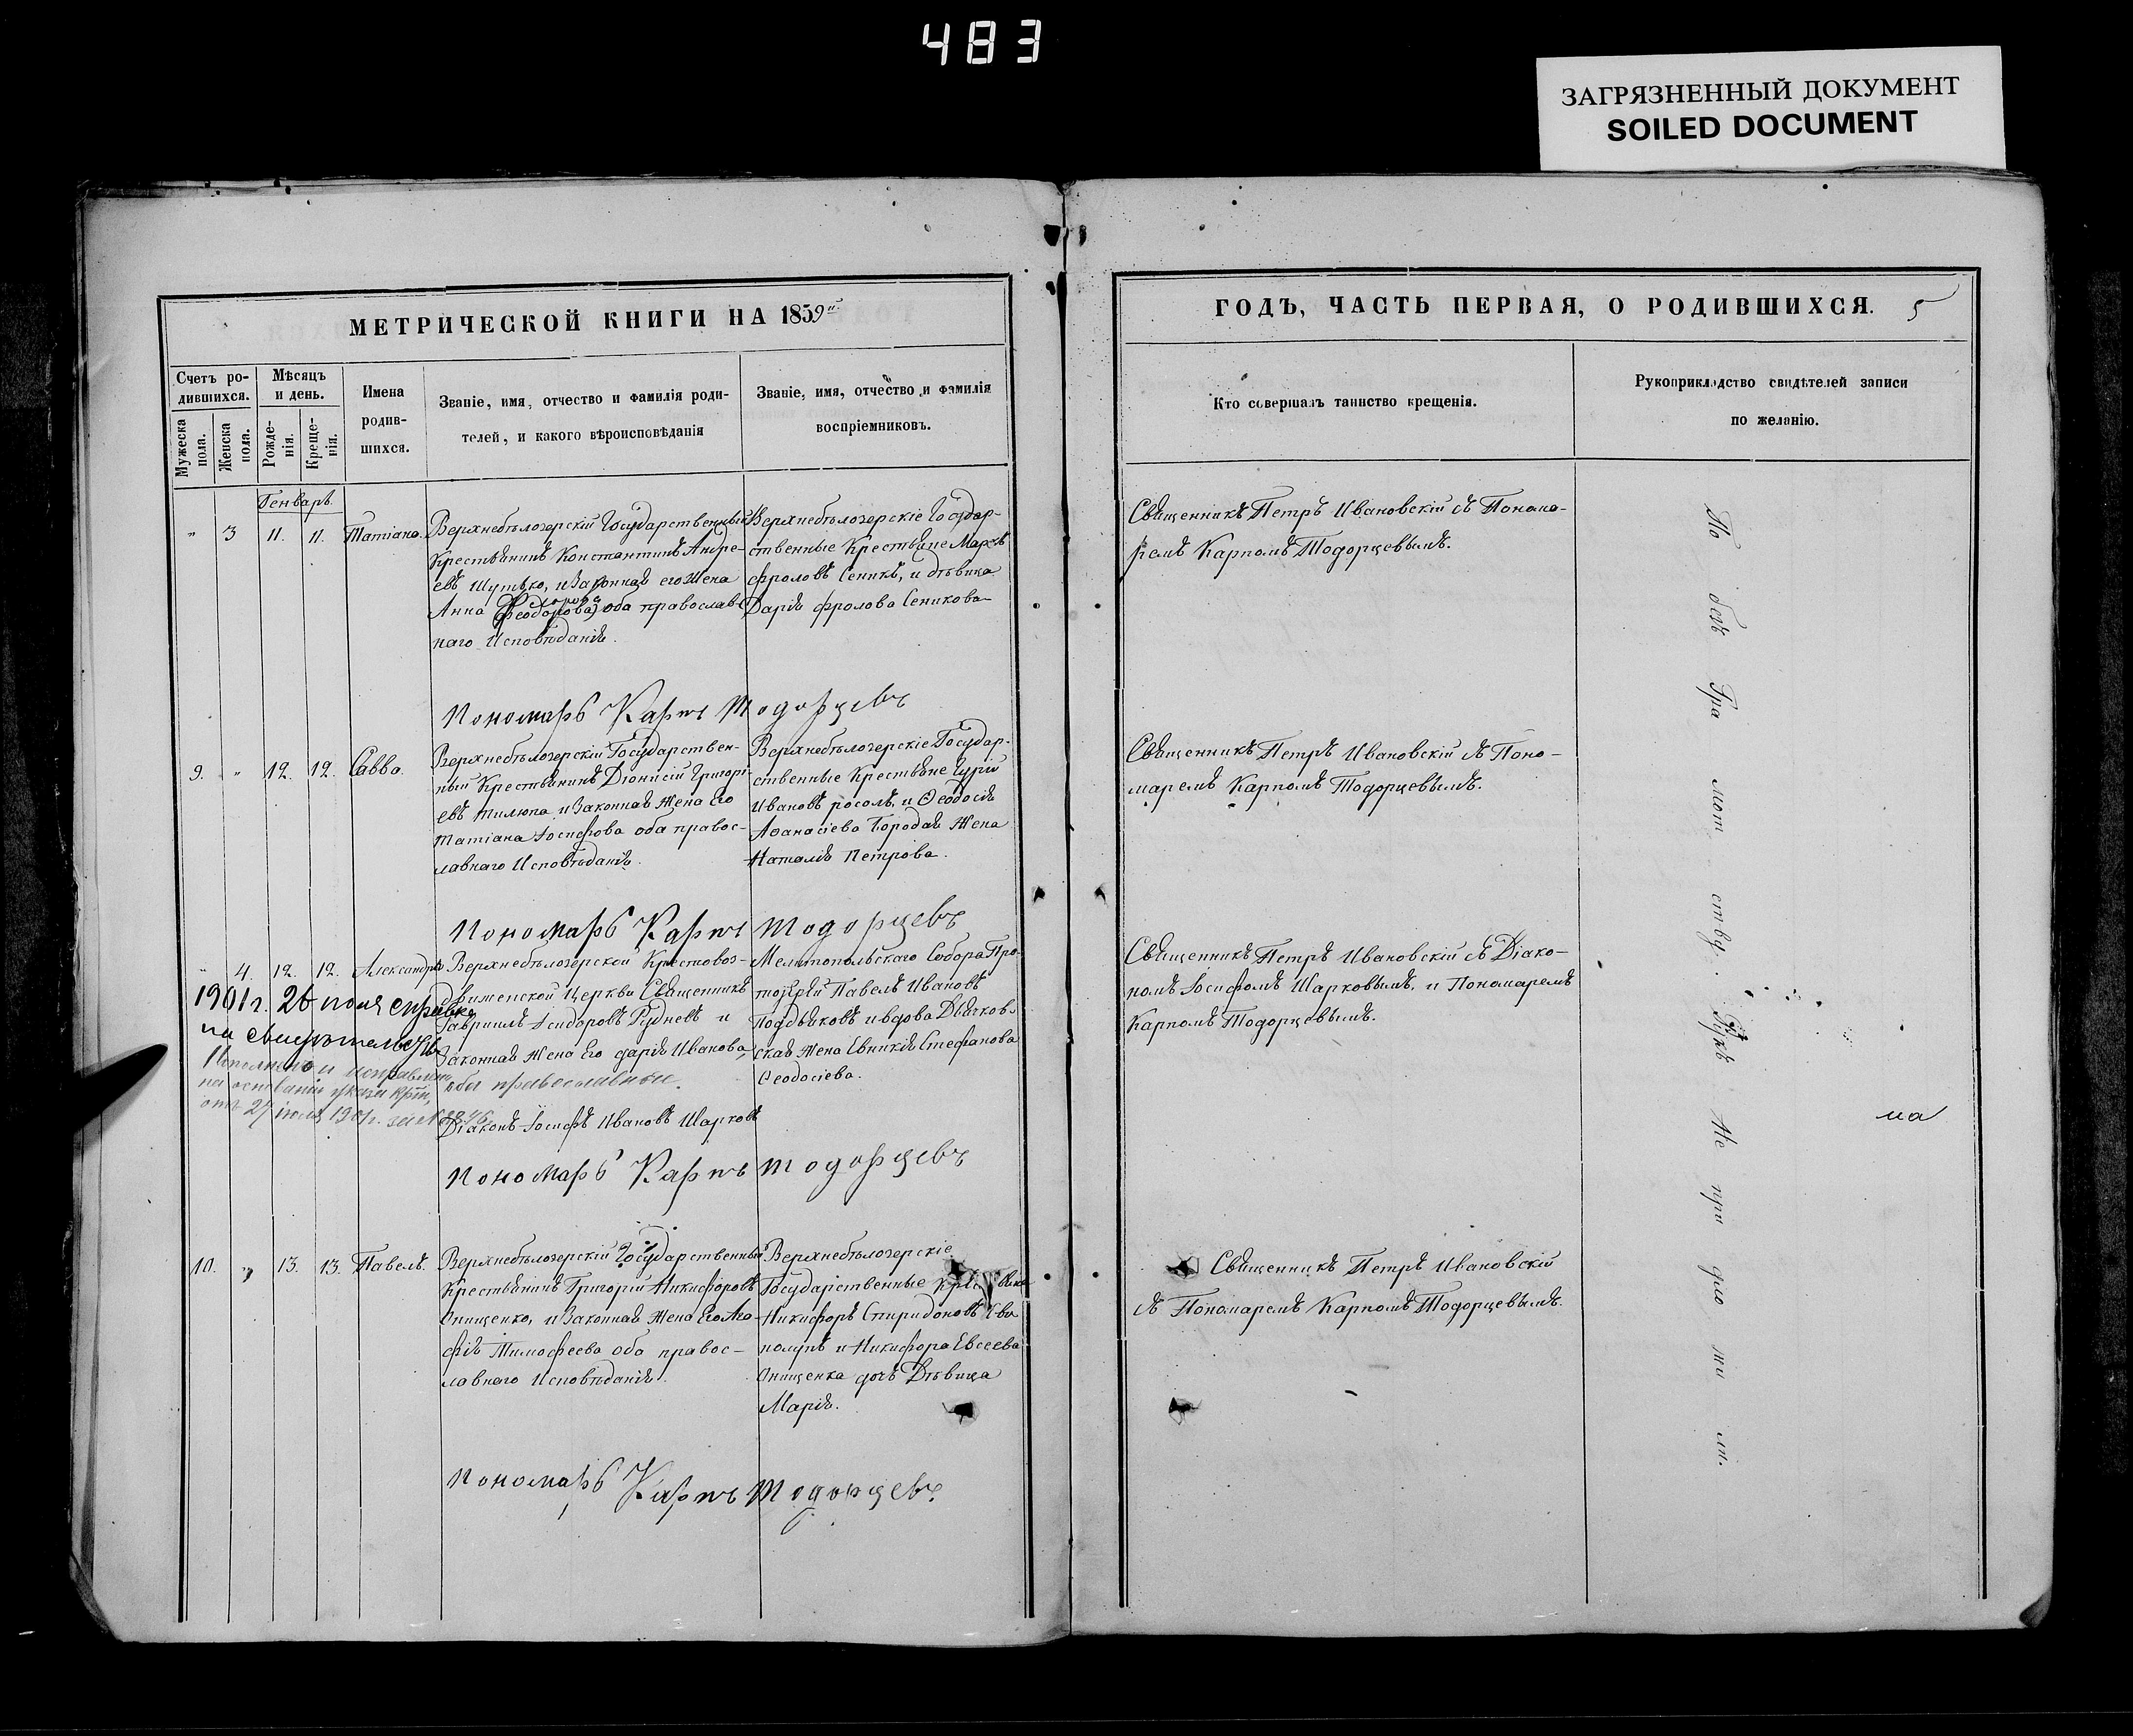 483
ЗАГРЯЗНЕННЫЙ ДОКУМЕНТ
SOILED DOCUMENT
МЕТРИЧЕСКОЙ КНИГИ НА 1859й
Счетъ ро-
дившихся.
Мужеска пола.
Женска пола.
Мѣсяцъ
и день.
Рожде-
нія.
Креще-
нія.
Имена
родив-
шихся.
Званіе, имя, отчество и фамилія роди-
телей, и какого вѣроисповѣданія
Званіе, имя, отчество и фамилія
воспріемниковъ.
Генварь.
" 3 11. 11. Татіана.
Верхнебѣлозерскій Государственный
Крестьянинъ Константинъ Андре-
евъ Шутько, и Законная его Жена
Анна Феодорова оба православ-
наго Исповѣданія.
Верхнебѣлозерскіе Государ-
ственные Крестьяне Маркъ
Фроловъ Сеникъ, и дѣвица
Дарія Фролова Сеникова
Пономарь Карпъ Тодорцевъ
9. " 12. 12. Савва.
Верхнебѣлозерскій Государствен-
ный Крестьянинъ Діонисій Григорі-
евъ Тилюпа и Законная Жена Его
Татіана Іосифова оба правос-
лавнаго Исповѣданія.
Верхнебѣлозерскіе Государ-
ственные Крестьяне Гурій
Ивановъ росолъ, и Ѳеодосія
Аѳанасіева Бородая Жена
Наталія Петрова.
Пономарь Карпъ Тодорцевъ
" 4. 12. 12. Александра
Верхнебѣлозерской Крестовоз-
движенской Церкви Священникъ
Гавриилъ Исидоровъ Рудневъ и
Законная Жена Его Дарія Иванова,
оба православные.
Мелитопольскаго Собора Про-
тоіерей Павелъ Ивановъ
Поддьяковъ и вдова Дьячков-
ская Жена Евникія Стефанова
Ѳеодосіева.
1901 г. 26 іюня справка
на свидѣтельство
Исполнено и исправлено
на основаніи указа
отъ 27 іюля 1901 г. за №
Діаконъ Іосифъ Ивановъ Шарковъ
Пономарь Карпъ Тодорцевъ
10. " 13. 13. Павелъ.
Верхнебѣлозерскій Государственный
Крестьянинъ Григорій Никифоровъ
Онищенко, и Законная Жена Его Ага-
фія Тимофеева оба правос-
лавнаго Исповѣданія.
Верхнебѣлозерскіе
Государственные
Никифоръ Спиридоновъ
и Никифора Евсеева
Онищенка дочь Дѣвица
Марія.
Пономарь Карпъ Тодорцевъ
ГОДЪ, ЧАСТЬ ПЕРВАЯ, О РОДИВШИХСЯ. 5
Кто совершалъ таинство крещенія.
Рукоприкладство свидѣтелей записи
по желанію.
Священникъ Петръ Ивановскій съ Понома-
ремъ Карпомъ Тодорцевымъ.
Священникъ Петръ Ивановскій съ Поно-
маремъ Карпомъ Тодорцевымъ.
Священникъ Петръ Ивановскій съ Діако-
номъ Іосифомъ Шарковымъ, и Пономаремъ
Карпомъ Тодорцевымъ.
Священникъ Петръ Ивановскій
съ Пономаремъ Карпомъ Тодорцевымъ.
По безъ гра мот ству